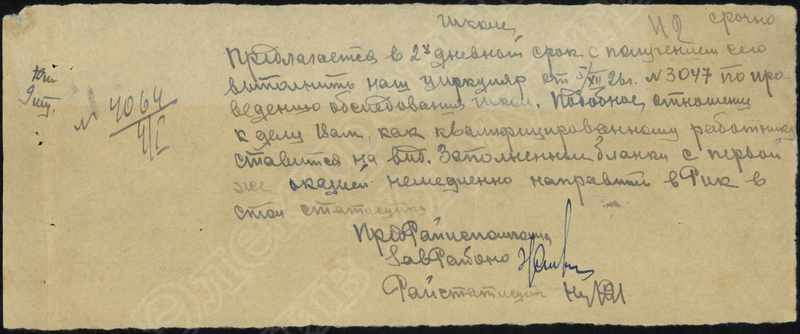 Школе,
№ 2 срочно
Предлагается в 2х дневный срок с получением сего
выполнить наш циркуляр от 5/XII 26г. №3047 по про-
ведению обследования школ. Подобное отношение
к делу Вам, как квалифицированному работнику
ставится на вид. Заполненные бланки с первой
же оказией немедленно направить в Рик в
стол статистики
ПредРайисполкома
ЗавРайоно
Райстатистик
№ 4064
4/I